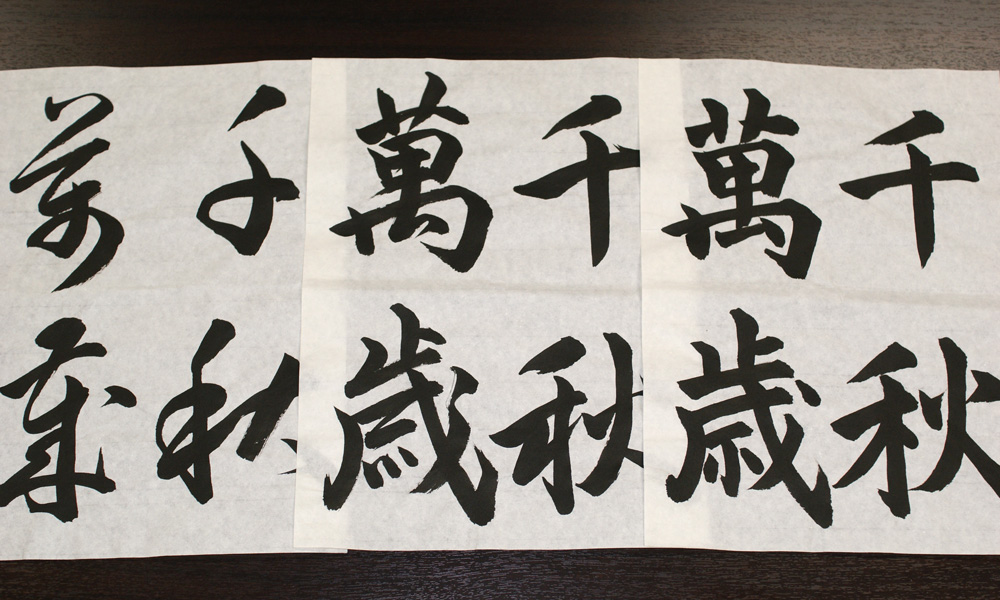 千秋
萬歳
千秋
萬歳
千秋
萬歳